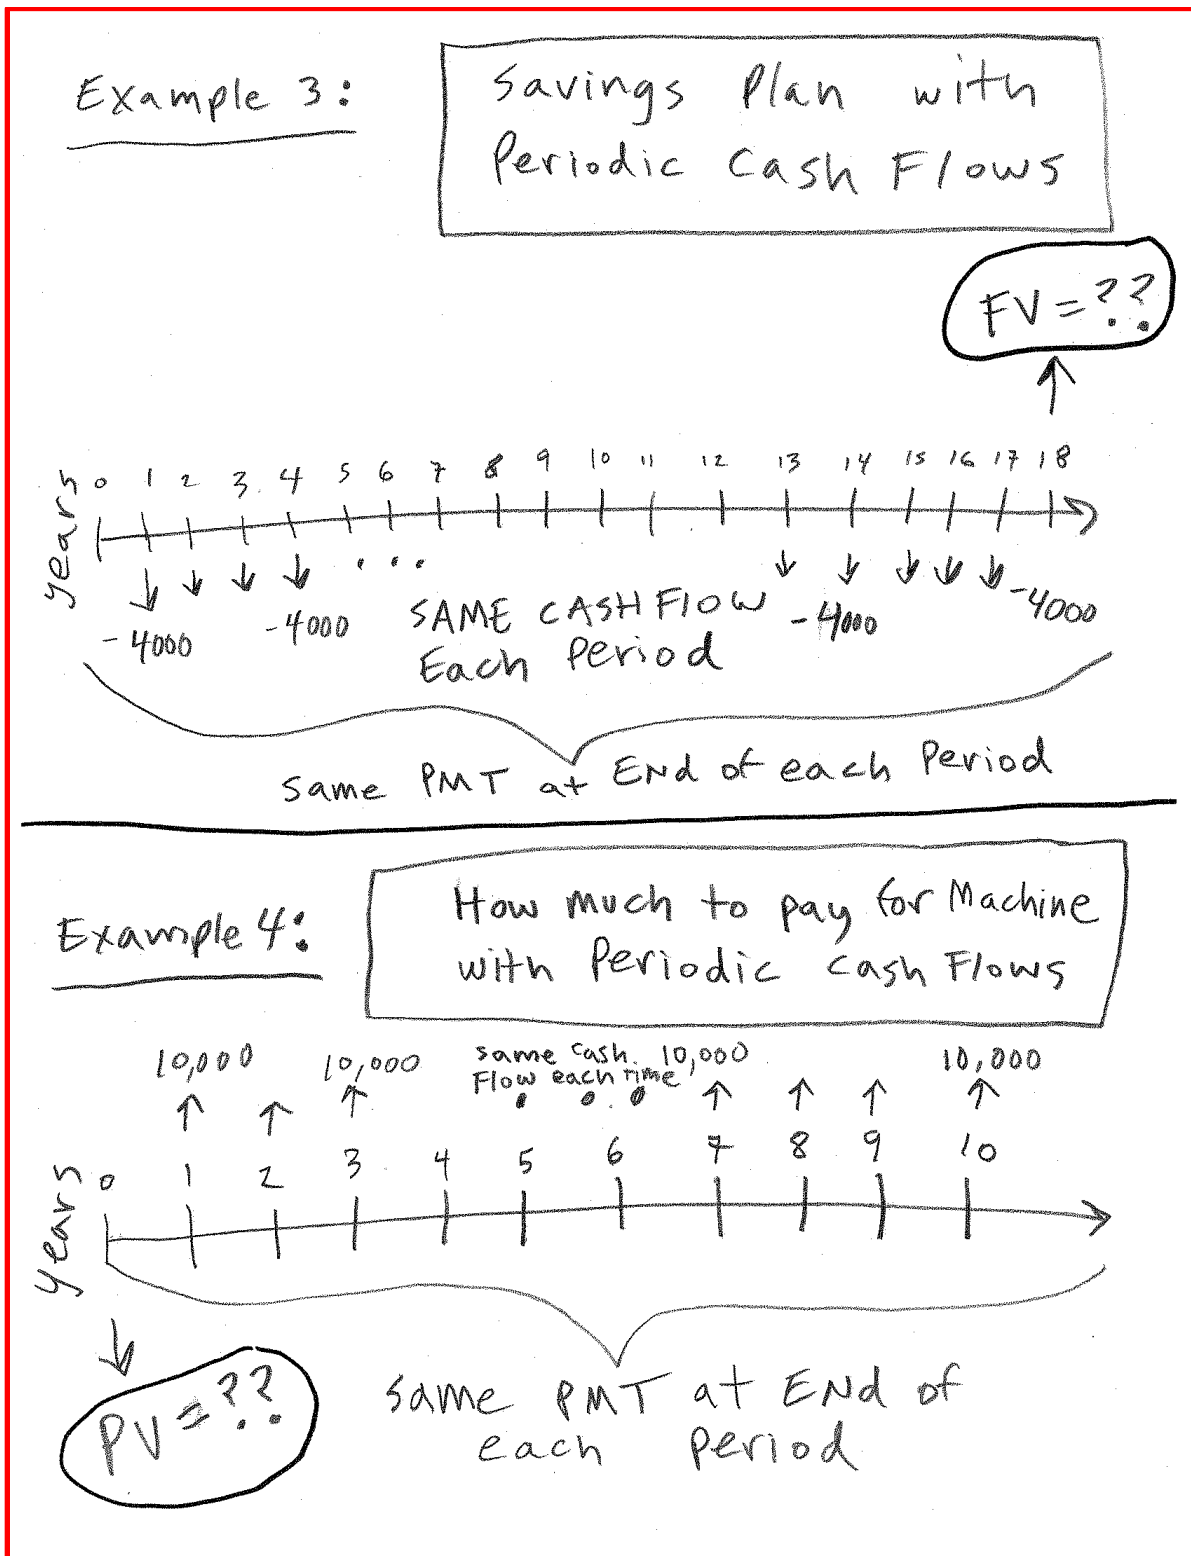 Example 3:
Savings Plan with
Periodic Cash Flows
FV = ??
years
0 1 2 3 4 5 6 7 8 9 10 11 12 13 14 15 16 17 18
-4000 -4000 SAME CASH FLOW -4000 -4000
Each Period
same PMT at END of each Period
Example 4:
How much to pay for Machine
with Periodic cash Flows
10,000 10,000 same cash 10,000 10,000
Flow each time
years
0 1 2 3 4 5 6 7 8 9 10
PV = ??
same PMT at END of
each period